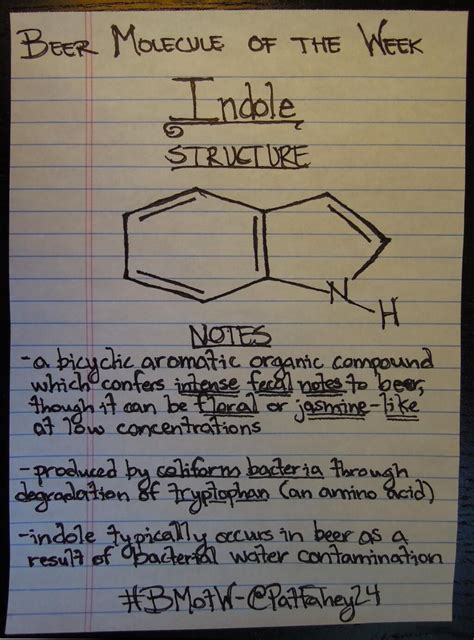 BEER MOLECULE OF THE WEEK
Indole
STRUCTURE
N
H
NOTES
-a bicyclic aromatic organic compound
which confers intense fecal notes to beer,
though it can be floral or jasmine-like
at low concentrations
-produced by coliform bacteria through
degradation of tryptophan (an amino acid)
-indole typically occurs in beer as a
result of bacterial water contamination
#BMotW-@PatFahey24